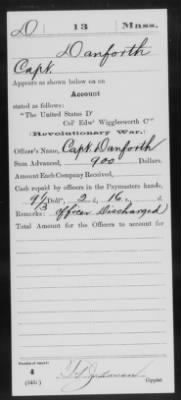 D | 13 | Mass.
Danforth
Capt.
Appears as shown below on an
Account
stated as follows:
"The United States Dr
Colo Edwd Wigglesworth Cr"
(Revolutionary War.)
Officer's Name, Capt. Danforth
Sum Advanced, 900 Dollars.
Amount Each Company Received,
Cash repaid by officers in the Paymasters hands,
9 1/3 Dolls, 2 £, 16 s, d.
Remarks: Officer Discharged
Total Amount for the Officers to account for
Number of record:
4
Copyist.